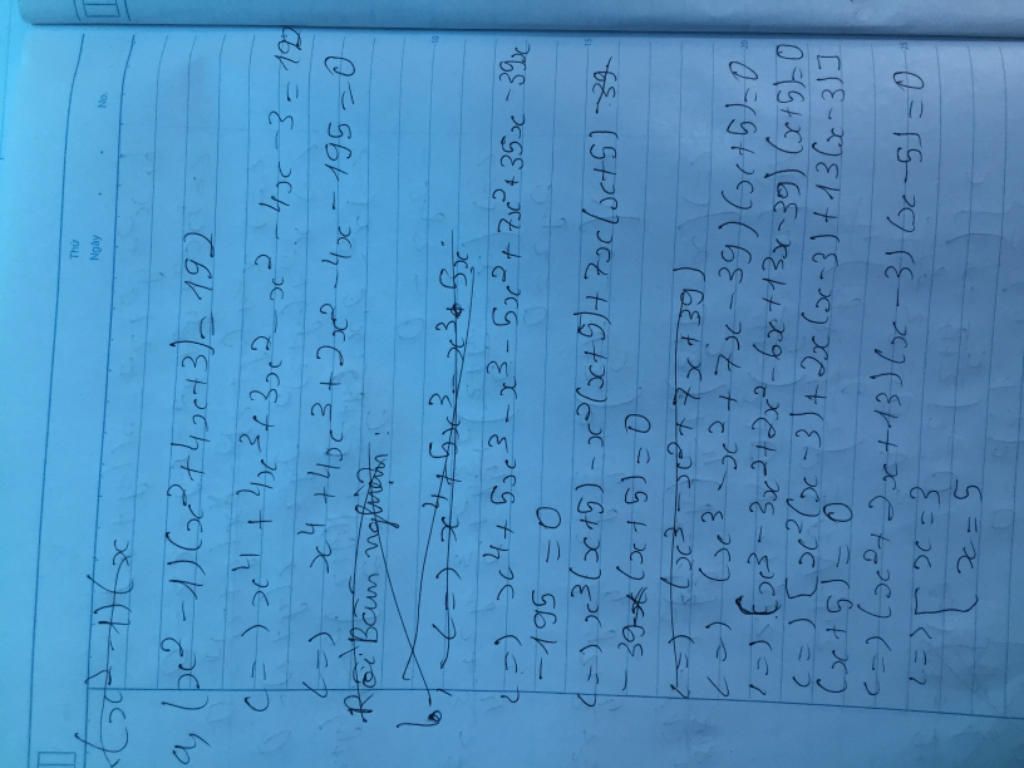 Thứ
Ngày
No.
(x² - 1)(x
a, (x² - 1)(x² + 4x + 3) = 192
<=> x⁴ + 4x³ + 3x² - x² - 4x - 3 = 192
<=> x⁴ + 4x³ + 2x² - 4x - 195 = 0
nghiệm:
<=> x⁴ + 5x³ - x³ + 5x
<=> x⁴ + 5x³ - x³ - 5x² + 7x² + 35x - 39x
- 195 = 0
<=> x³(x+5) - x²(x+5) + 7x(x+5) - 39
- 39x(x+5) = 0
<=> (x³ - x² + 7x + 39)
<=> (x³ - x² + 7x - 39)(x+5) = 0
<=> [x³ - 3x² + 2x² - 6x + 13x - 39)(x+5) = 0
<=> [x²(x - 3) + 2x(x - 3) + 13(x - 3)]
(x + 5) = 0
<=> (x² + 2x + 13)(x - 3)(x - 5) = 0
<=> [x = 3
x = 5